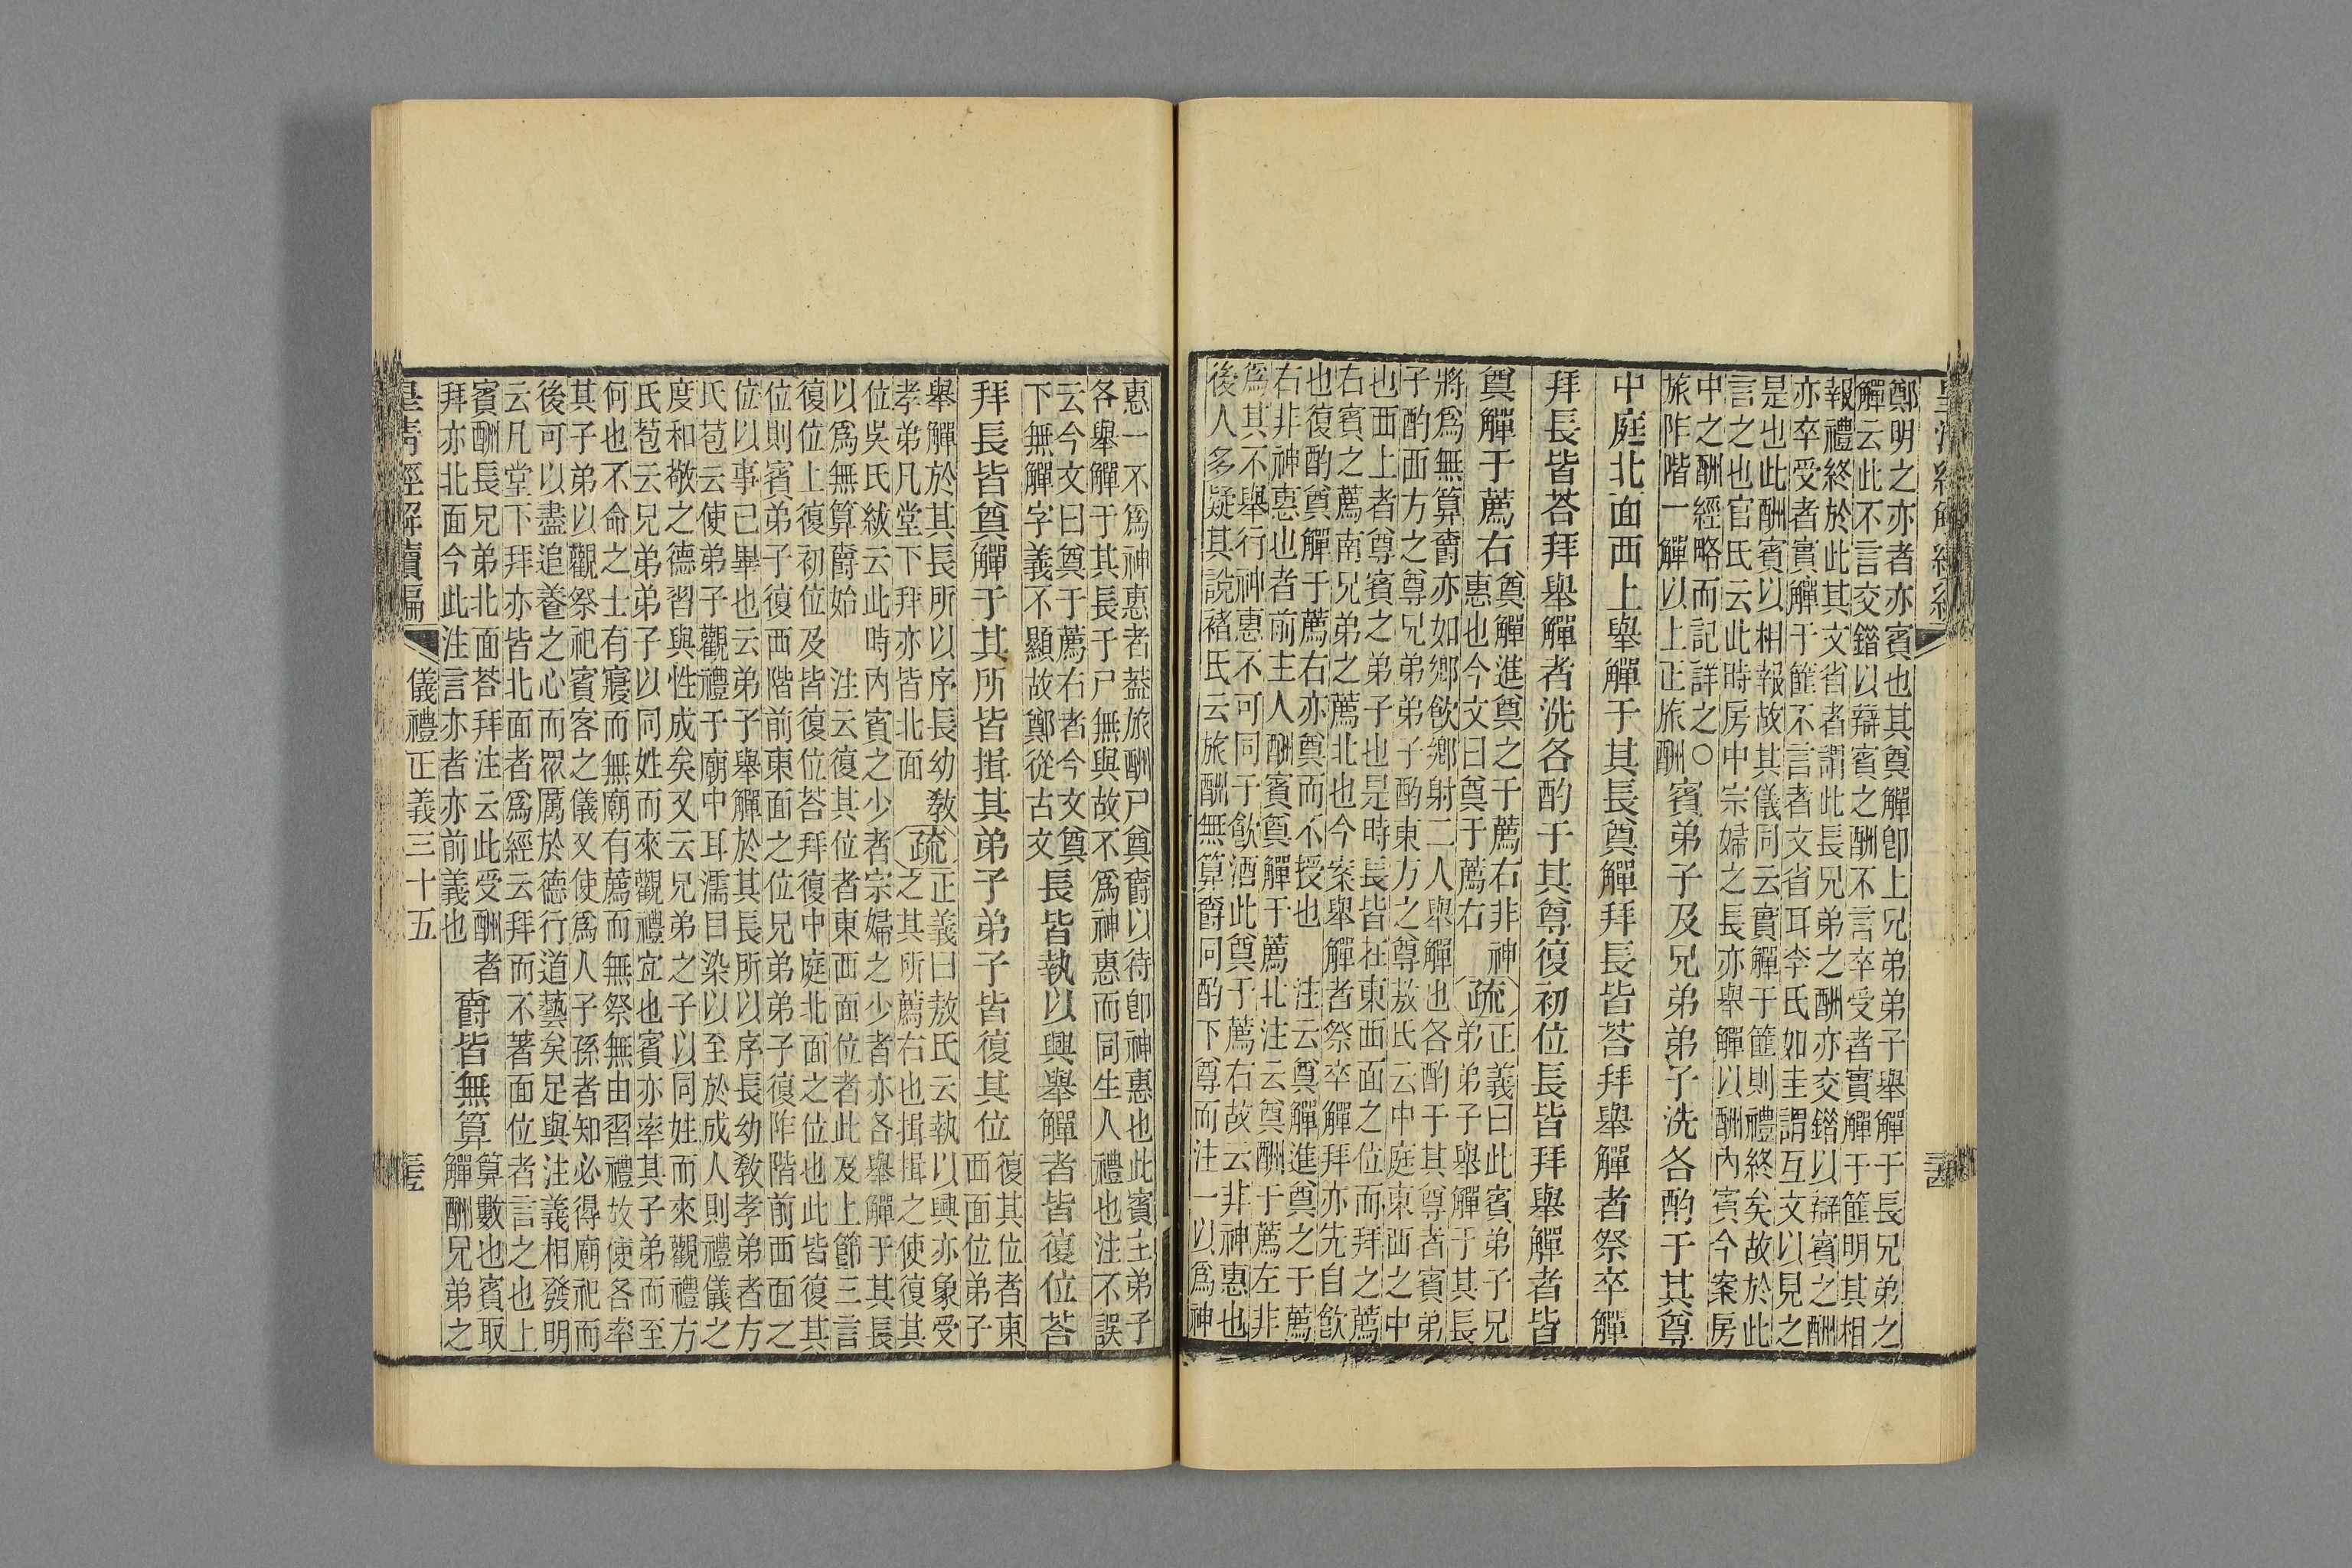 鄭明之亦者亦賓也其奠觶卽上兄弟弟子舉觶于長兄弟之
觶云此不言交錯以辯賓之酬不言卒受者實觶于篚明其相
報禮終於此其文省者謂此長兄弟之酬亦交錯以辯賓之酬
亦卒受者實觶于篚不言者文省耳李氏如圭謂互文以見之
是也此酬賓以相報故其儀同云實觶于篚則禮終矣故於此
言之也官氏云此時房中宗婦之長亦舉觶以酬內賓今案房
中之酬經略而記詳之○
旅阼階一觶以上正旅酬
賓弟子及兄弟弟子洗各酌于其尊
中庭北面西上舉觶于其長奠觶拜長皆荅拜舉觶者祭卒觶
拜長皆荅拜舉觶者洗各酌于其尊復初位長皆拜舉觶者皆
奠觶于薦右
奠觶進奠之于薦右非神
惠也今文曰奠于薦右
疏
正義曰此賓弟子兄
弟弟子舉觶于其長
將爲無算爵亦如鄉飮鄉射二人舉觶也各酌于其尊者賓弟
子酌西方之尊兄弟弟子酌東方之尊敖氏云中庭東西之中
也西上者尊賓之弟子也是時長皆在東西面之位而拜之薦
右賓之薦南兄弟之薦北也今案舉觶者祭卒觶拜亦先自飮
也復酌奠觶于薦右亦奠而不授也　注云奠觶進奠之于薦
右非神惠也者前主人酬賓奠觶于薦北注云奠酬于薦左非
爲其不舉行神惠不可同于飮酒此奠于薦右故云非神惠也
後人多疑其說褚氏云旅酬無算爵同酌下尊而注一以爲神
惠一不爲神惠者葢旅酬尸奠爵以待卽神惠也此賓主弟子
各舉觶于其長于尸無與故不爲神惠而同生人禮也注不誤
云今文曰奠于薦右者今文奠
下無觶字義不顯故鄭從古文
長皆執以興舉觶者皆復位荅
拜長皆奠觶于其所皆揖其弟子弟子皆復其位
復其位者東
西面位弟子
舉觶於其長所以序長幼敎
孝弟凡堂下拜亦皆北面
疏
正義曰敖氏云執以興亦象受
之其所薦右也揖揖之使復其
位吳氏紱云此時內賓之少者宗婦之少者亦各舉觶于其長
以爲無算爵始　注云復其位者東西面位者此及上節三言
復位上復初位及皆復位荅拜復中庭北面之位也此皆復其
位則賓弟子復西階前東面之位兄弟弟子復阼階前西面之
位以事已畢也云弟子舉觶於其長所以序長幼敎孝弟者方
氏苞云使弟子觀禮于廟中耳濡目染以至於成人則禮儀之
度和敬之德習與性成矣又云兄弟之子以同姓而來觀禮方
氏苞云兄弟弟子以同姓而來觀禮宜也賓亦率其子弟而至
何也不命之士有寢而無廟有薦而無祭無由習禮故使各率
其子弟以觀祭祀賓客之儀又使爲人子孫者知必得廟祀而
後可以盡追養之心而眾厲於德行道藝矣足與注義相發明
云凡堂下拜亦皆北面者爲經云拜而不著面位者言之也上
賓酬長兄弟北面荅拜注云此受酬者
拜亦北面今此注言亦者亦前義也
爵皆無算
算數也賓取
觶酬兄弟之
皇清經解續編
儀禮正義三十五